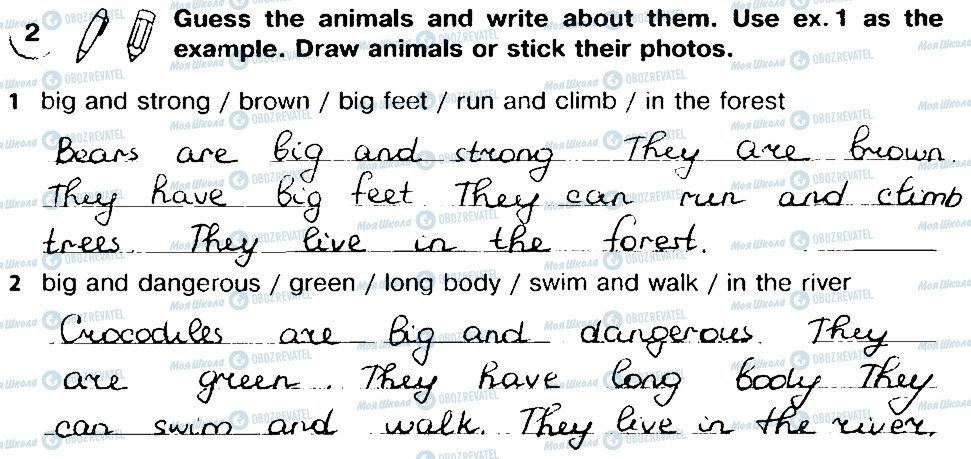 2 Guess the animals and write about them. Use ex. 1 as the
example. Draw animals or stick their photos.
1 big and strong / brown / big feet / run and climb / in the forest
Bears are big and strong They are brown.
They have big feet They can run and climb
trees. They live in the forest.
2 big and dangerous / green / long body / swim and walk / in the river
Crocodiles are big and dangerous. They
are green. They have long body They
can swim and walk. They live in the river.